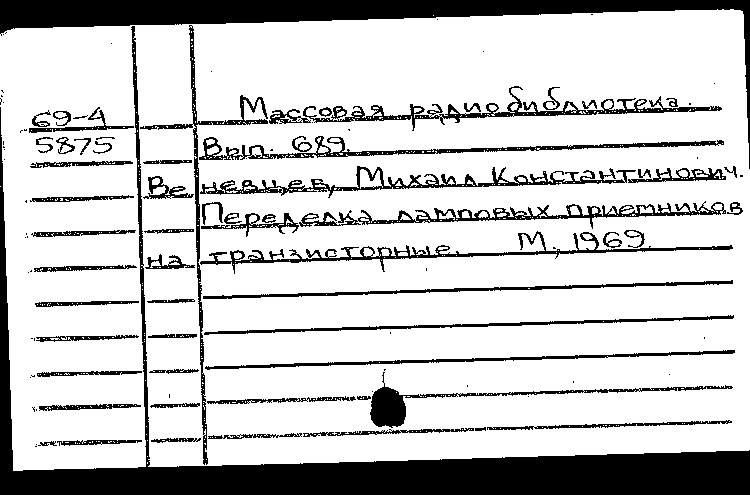 69-4 Массовая радиобиблиотека.
5875 Вып. 689.
Веневцев, Михаил Константинович.
Переделка ламповых приемников
на транзисторные. М., 1969.